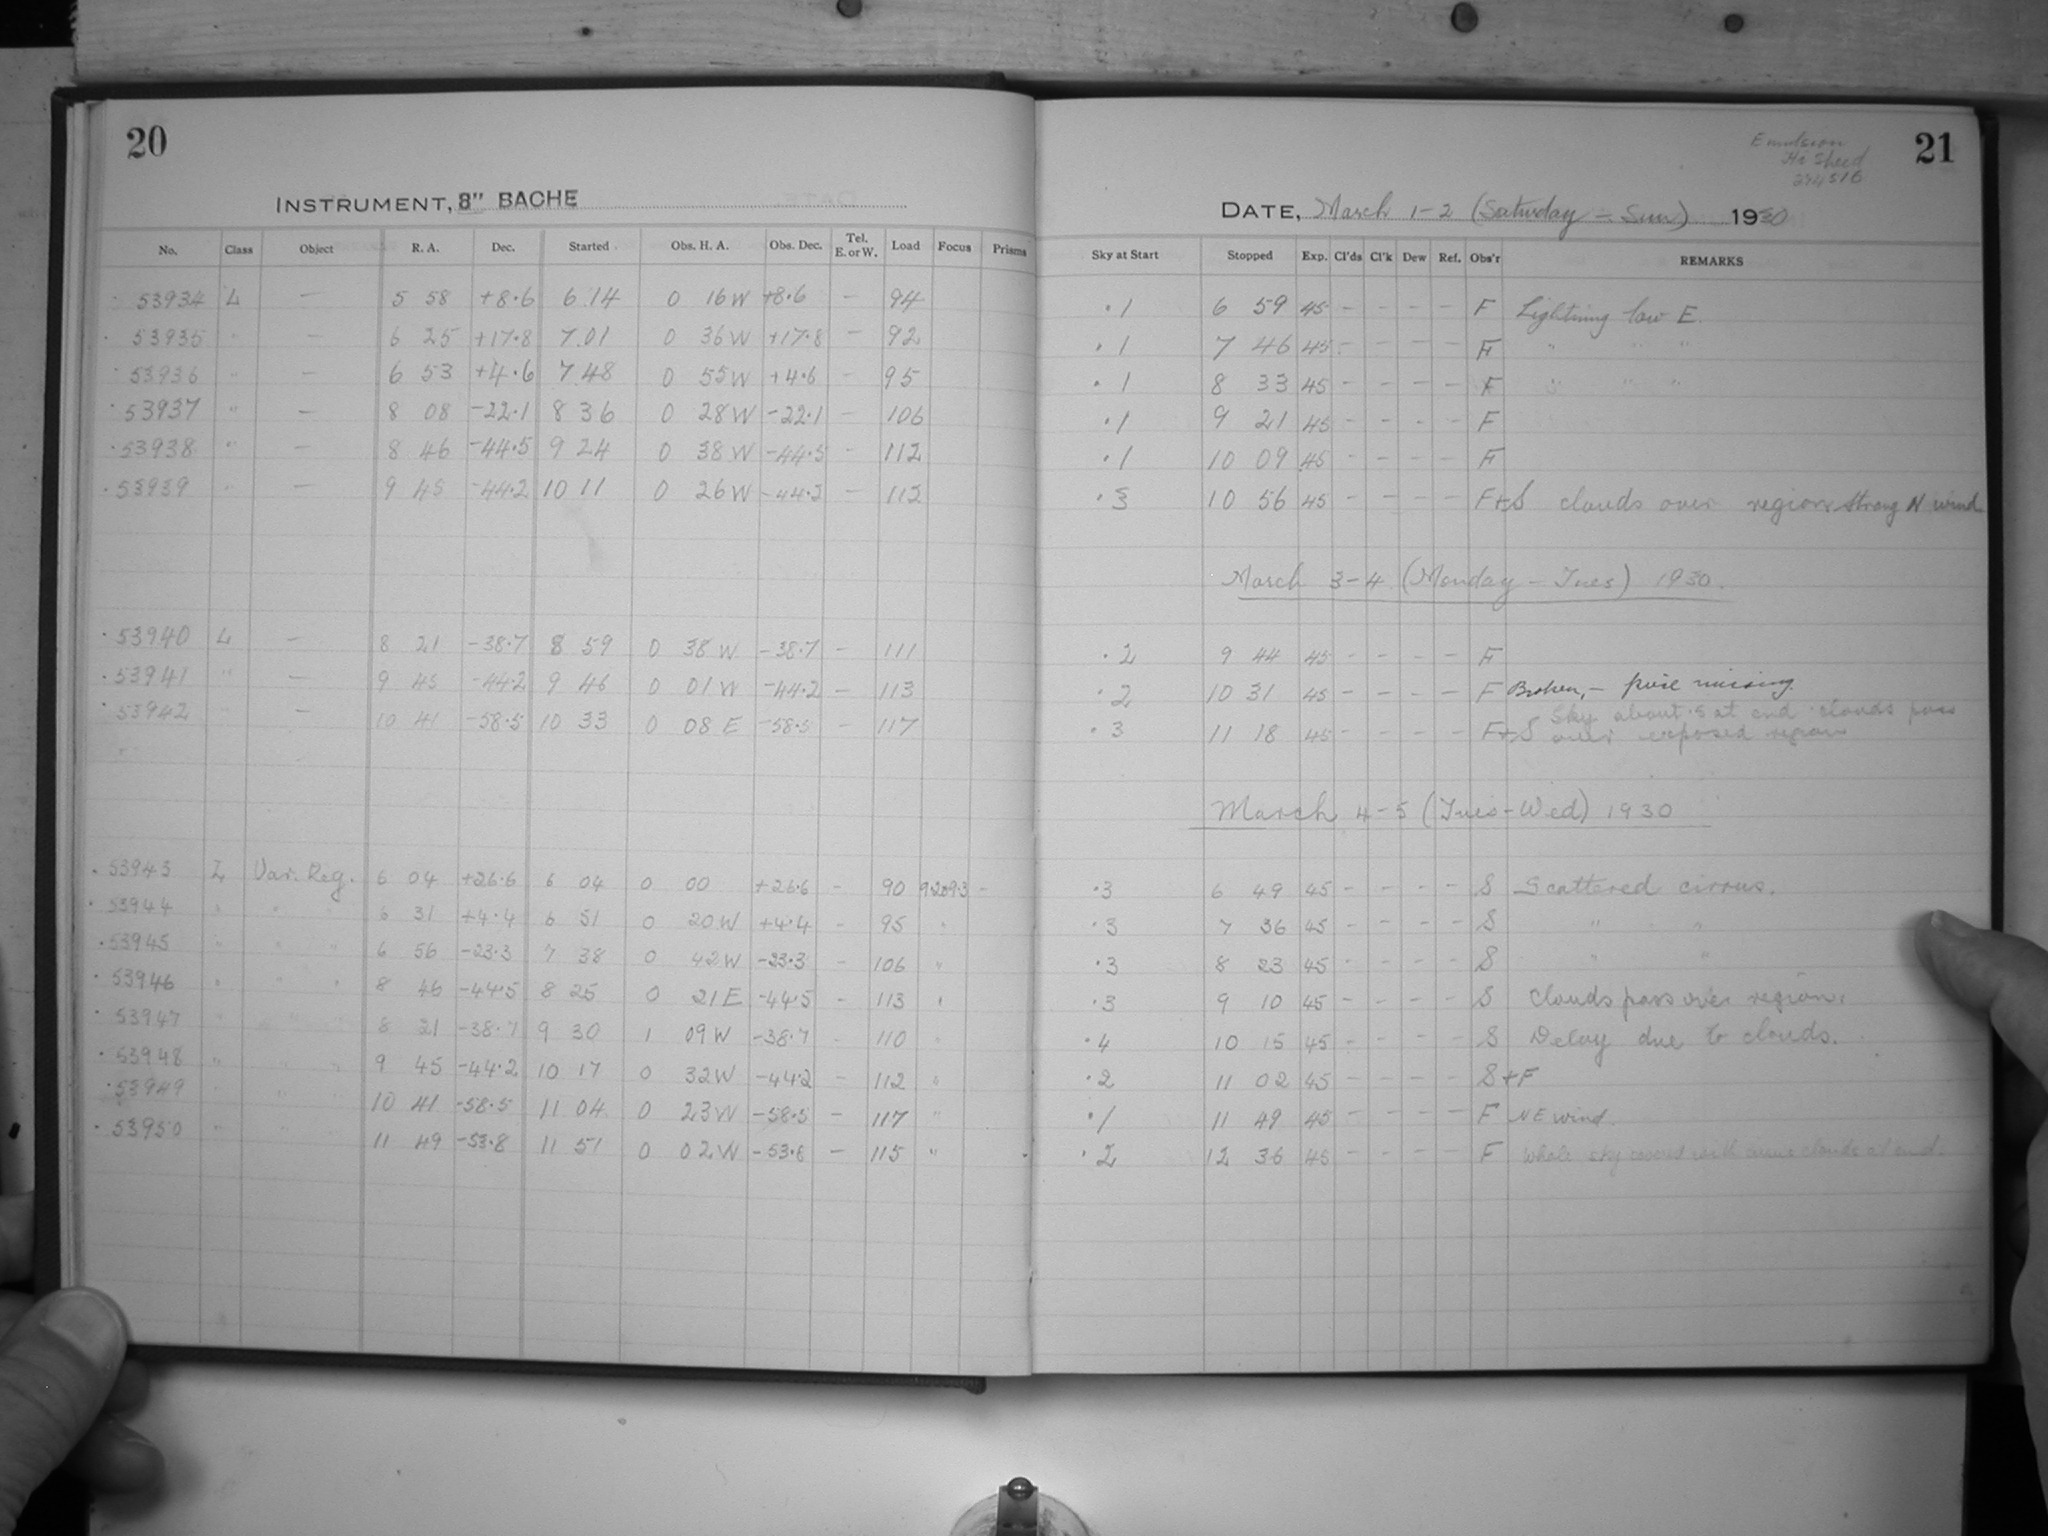 20
INSTRUMENT, 8" BACHE
No. Class Object R. A. Dec. Started Obs. H. A. Obs. Dec. Tel. E. or W. Load Focus Prisms
53934 L — 5 58 +8.6 6 14 0 16 W +8.6 — 94
53935 " — 6 25 +17.8 7.01 0 36 W +17.8 — 92
53936 " — 6 53 +4.6 7 48 0 55 W +4.6 — 95
53937 " — 8 08 -22.1 8 36 0 28 W -22.1 — 106
53938 " — 8 46 -44.5 9 24 0 38 W -44.5 — 112
53939 " — 9 45 -44.2 10 11 0 26 W -44.2 — 112
53940 L — 8 21 -38.7 8 59 0 38 W -38.7 — 111
53941 " — 9 45 -44.2 9 46 0 01 W -44.2 — 113
53942 " — 10 41 -58.5 10 33 0 08 E -58.5 — 117
53943 L Var. Reg. 6 04 +26.6 6 04 0 00 +26.6 — 90 9.2093 —
53944 " " " 6 31 +4.4 6 51 0 20 W +4.4 — 95 "
53945 " " " 6 56 -23.3 7 38 0 42 W -23.3 — 106 "
53946 " " " 8 46 -44.5 8 25 0 21 E -44.5 — 113 "
53947 " " " 8 21 -38.7 9 30 1 09 W -38.7 — 110 "
53948 " " " 9 45 -44.2 10 17 0 32 W -44.2 — 112 "
53949 " " " 10 41 -58.5 11 04 0 23 W -58.5 — 117 "
53950 " " " 11 49 -53.8 11 51 0 02 W -53.8 — 115 "
21
Emulsion
Hi Speed
DATE, March 1-2 (Saturday - Sun) 1930
Sky at Start Stopped Exp. Cl'ds Cl'k Dew Ref. Obs'r REMARKS
.1 6 59 45 — — — — F Lightning low E.
.1 7 46 45 — — — — F " " "
.1 8 33 45 — — — — F " " "
.1 9 21 45 — — — — F
.1 10 09 45 — — — — F
.3 10 56 45 — — — — F+S clouds over region strong N wind
March 3-4 (Monday - Tues) 1930.
.2 9 44 45 — — — — F
.2 10 31 45 — — — — F Broken, — piece missing.
.3 11 18 45 — — — — F+S Sky about .5 at end clouds pass
over exposed region
March 4-5 (Tues-Wed) 1930
.3 6 49 45 — — — — S Scattered cirrus.
.3 7 36 45 — — — — S " "
.3 8 23 45 — — — — S " "
.3 9 10 45 — — — — S Clouds pass over region.
.4 10 15 45 — — — — S Delay due to clouds.
.2 11 02 45 — — — — S+F
.1 11 49 45 — — — — F NE wind.
.2 12 36 45 — — — — F Whole sky covered with cirrus clouds at end.